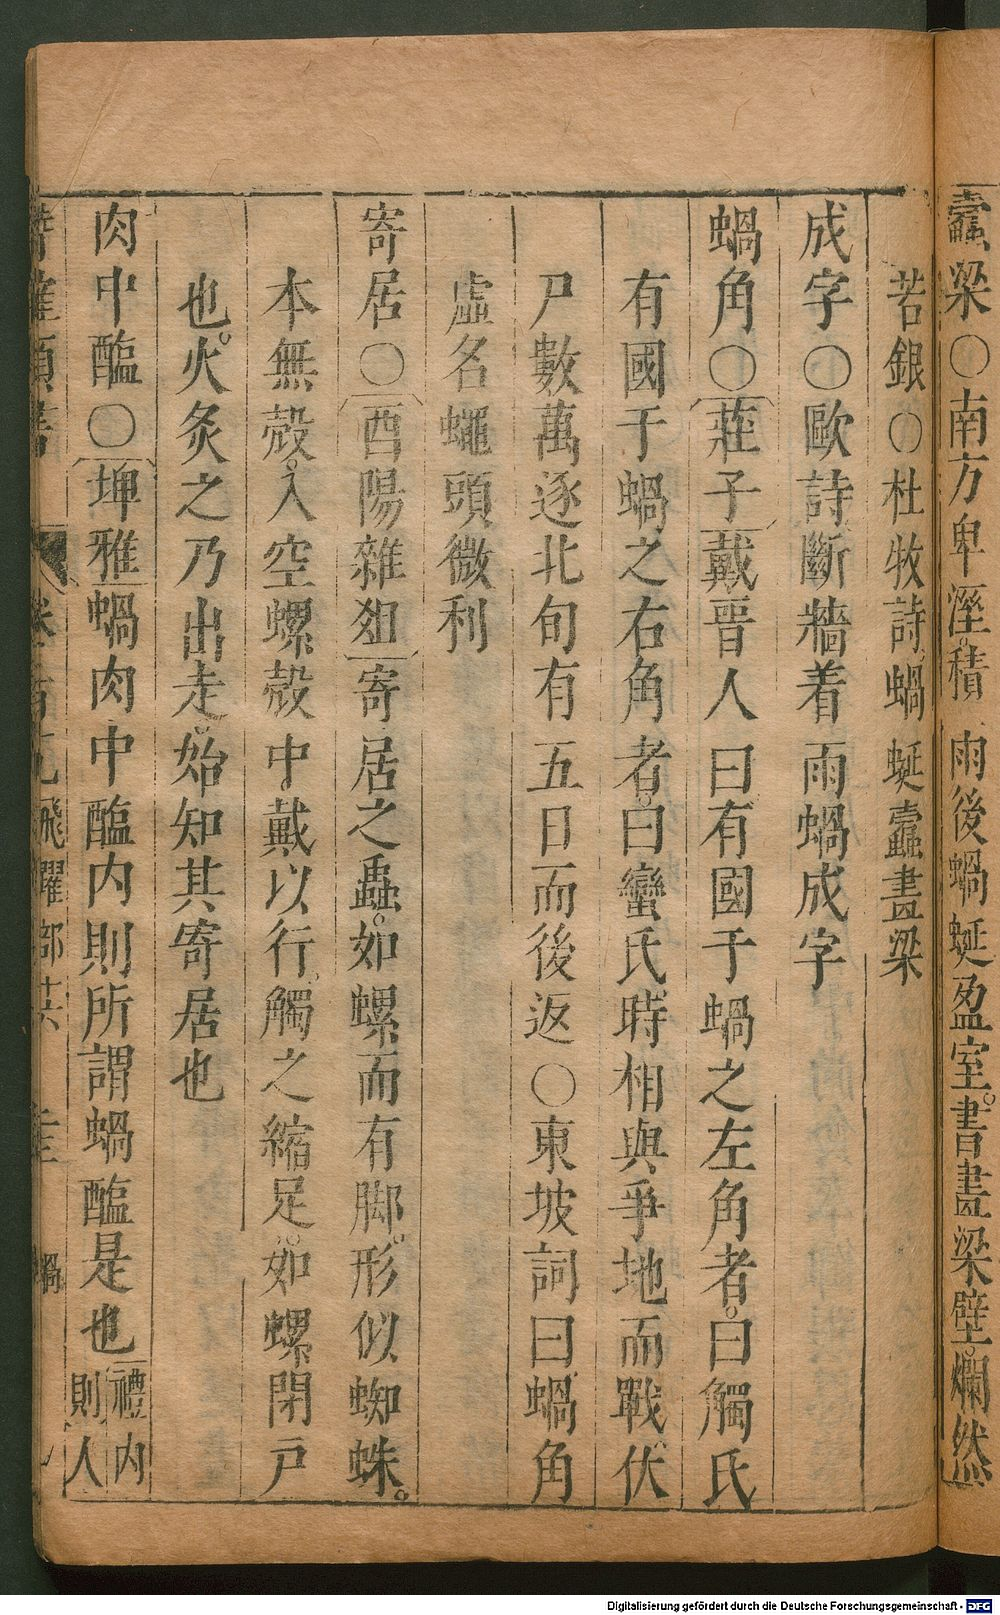 蠹梁○南方卑溼積雨後蝸蜒盈室書畫梁壁爛然
若銀○杜牧詩蝸蜒蠹畫梁
成字○歐詩斷牆着雨蝸成字
蝸角○莊子戴晋人曰有國于蝸之左角者曰觸氏
有國于蝸之右角者曰蠻氏時相與爭地而戰伏
尸數萬逐北旬有五日而後返○東坡詞曰蝸角
虛名蠅頭微利
寄居○酉陽雜俎寄居之蟲如螺而有脚形似蜘蛛
本無殼入空螺殼中戴以行觸之縮足如螺閉戶
也火炙之乃出走始知其寄居也
肉中醢○埤雅蝸肉中醢內則所謂蝸醢是也禮內
則人
類書 卷百九飛躍部 蝸
Digitalisierung gefördert durch die Deutsche Forschungsgemeinschaft - DFG